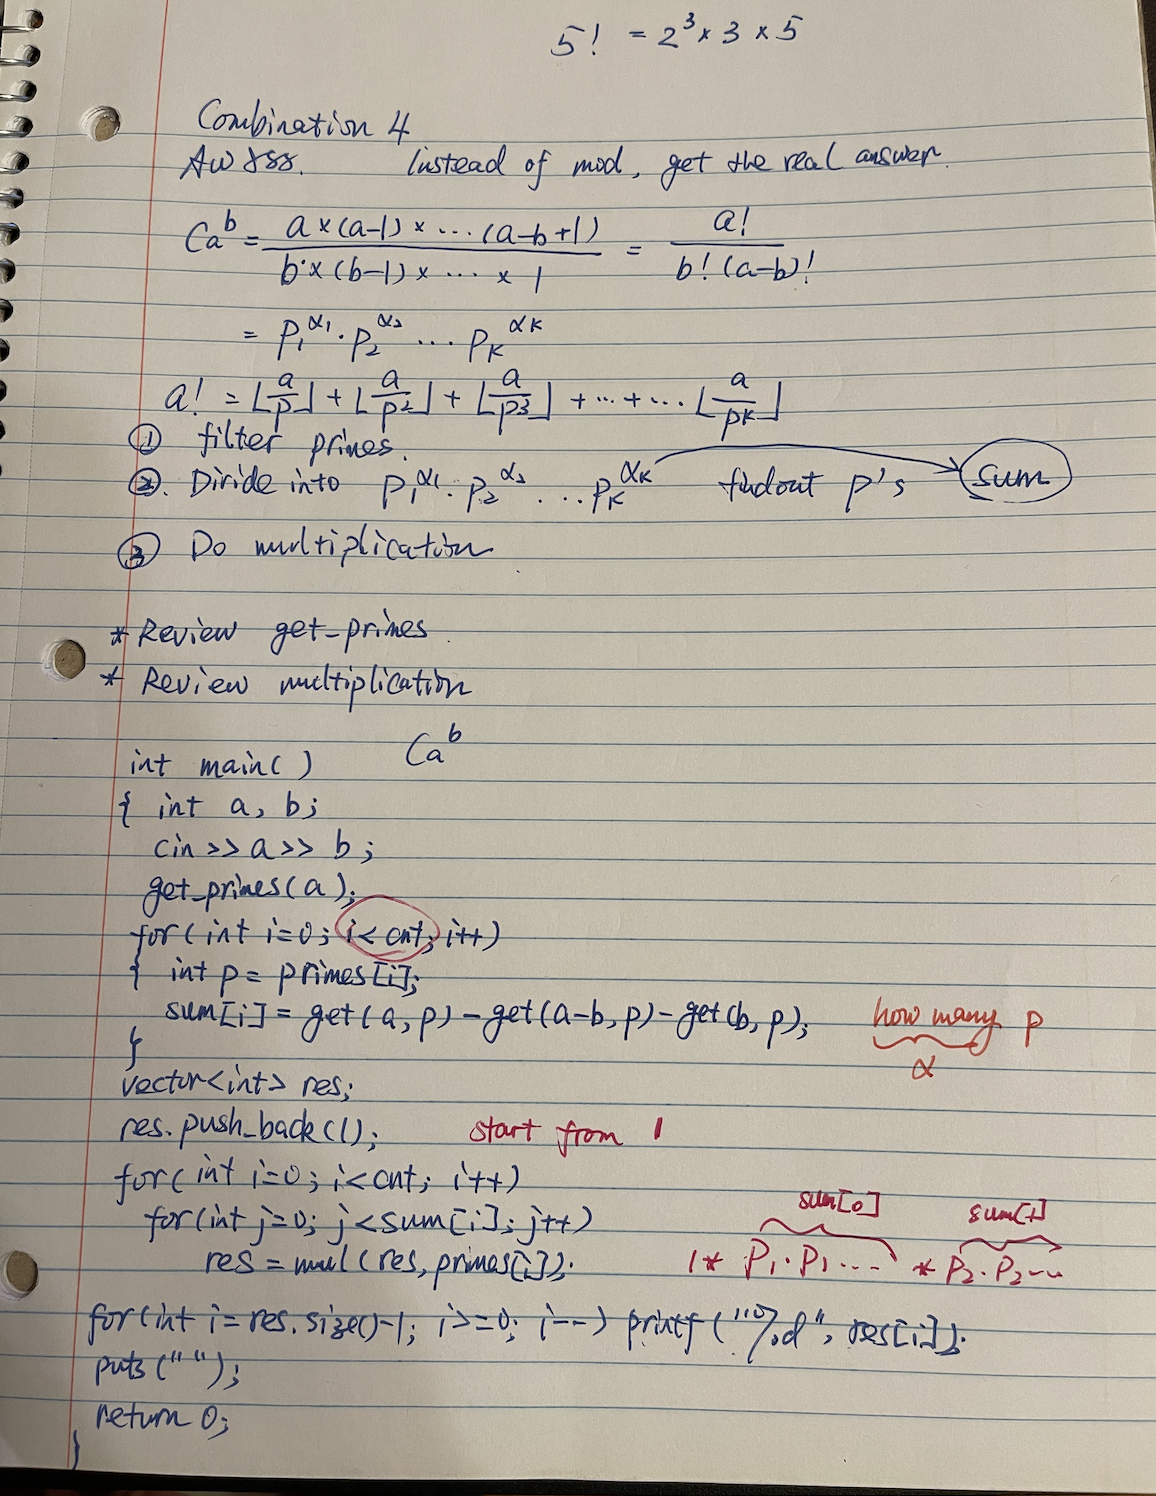 5! = 2³ × 3 × 5
Combination 4
AW 888. Instead of mod, get the real answer.
Ca^b = a×(a-1)× ... (a-b+1) / b×(b-1)× ... × 1 = a! / b!(a-b)!
= P₁^α₁ · P₂^α₂ ... Pₖ^αₖ
a! = ⌊a/p⌋ + ⌊a/p²⌋ + ⌊a/p³⌋ + ... + ... ⌊a/pᵏ⌋
① filter primes.
②. Divide into P₁^α₁ · P₂^α₂ ... Pₖ^αₖ findout p's sum
③ Do multiplication
* Review get_primes.
* Review multiplication
Ca^b
int main()
{ int a, b;
cin >> a >> b;
get_primes(a);
for(int i=0; i<cnt; i++)
{ int p = primes[i];
sum[i] = get(a, p) - get(a-b, p) - get(b, p); how many p
α
}
vector<int> res;
res.push_back(1); start from 1
for(int i=0; i<cnt; i++)
for(int j=0; j<sum[i]; j++) sum[0] sum[1]
res = mul(res, primes[i]); 1* P₁·P₁... * P₂·P₂...
for(int i=res.size()-1; i>=0; i--) printf("%d", res[i]);
puts("");
return 0;
}